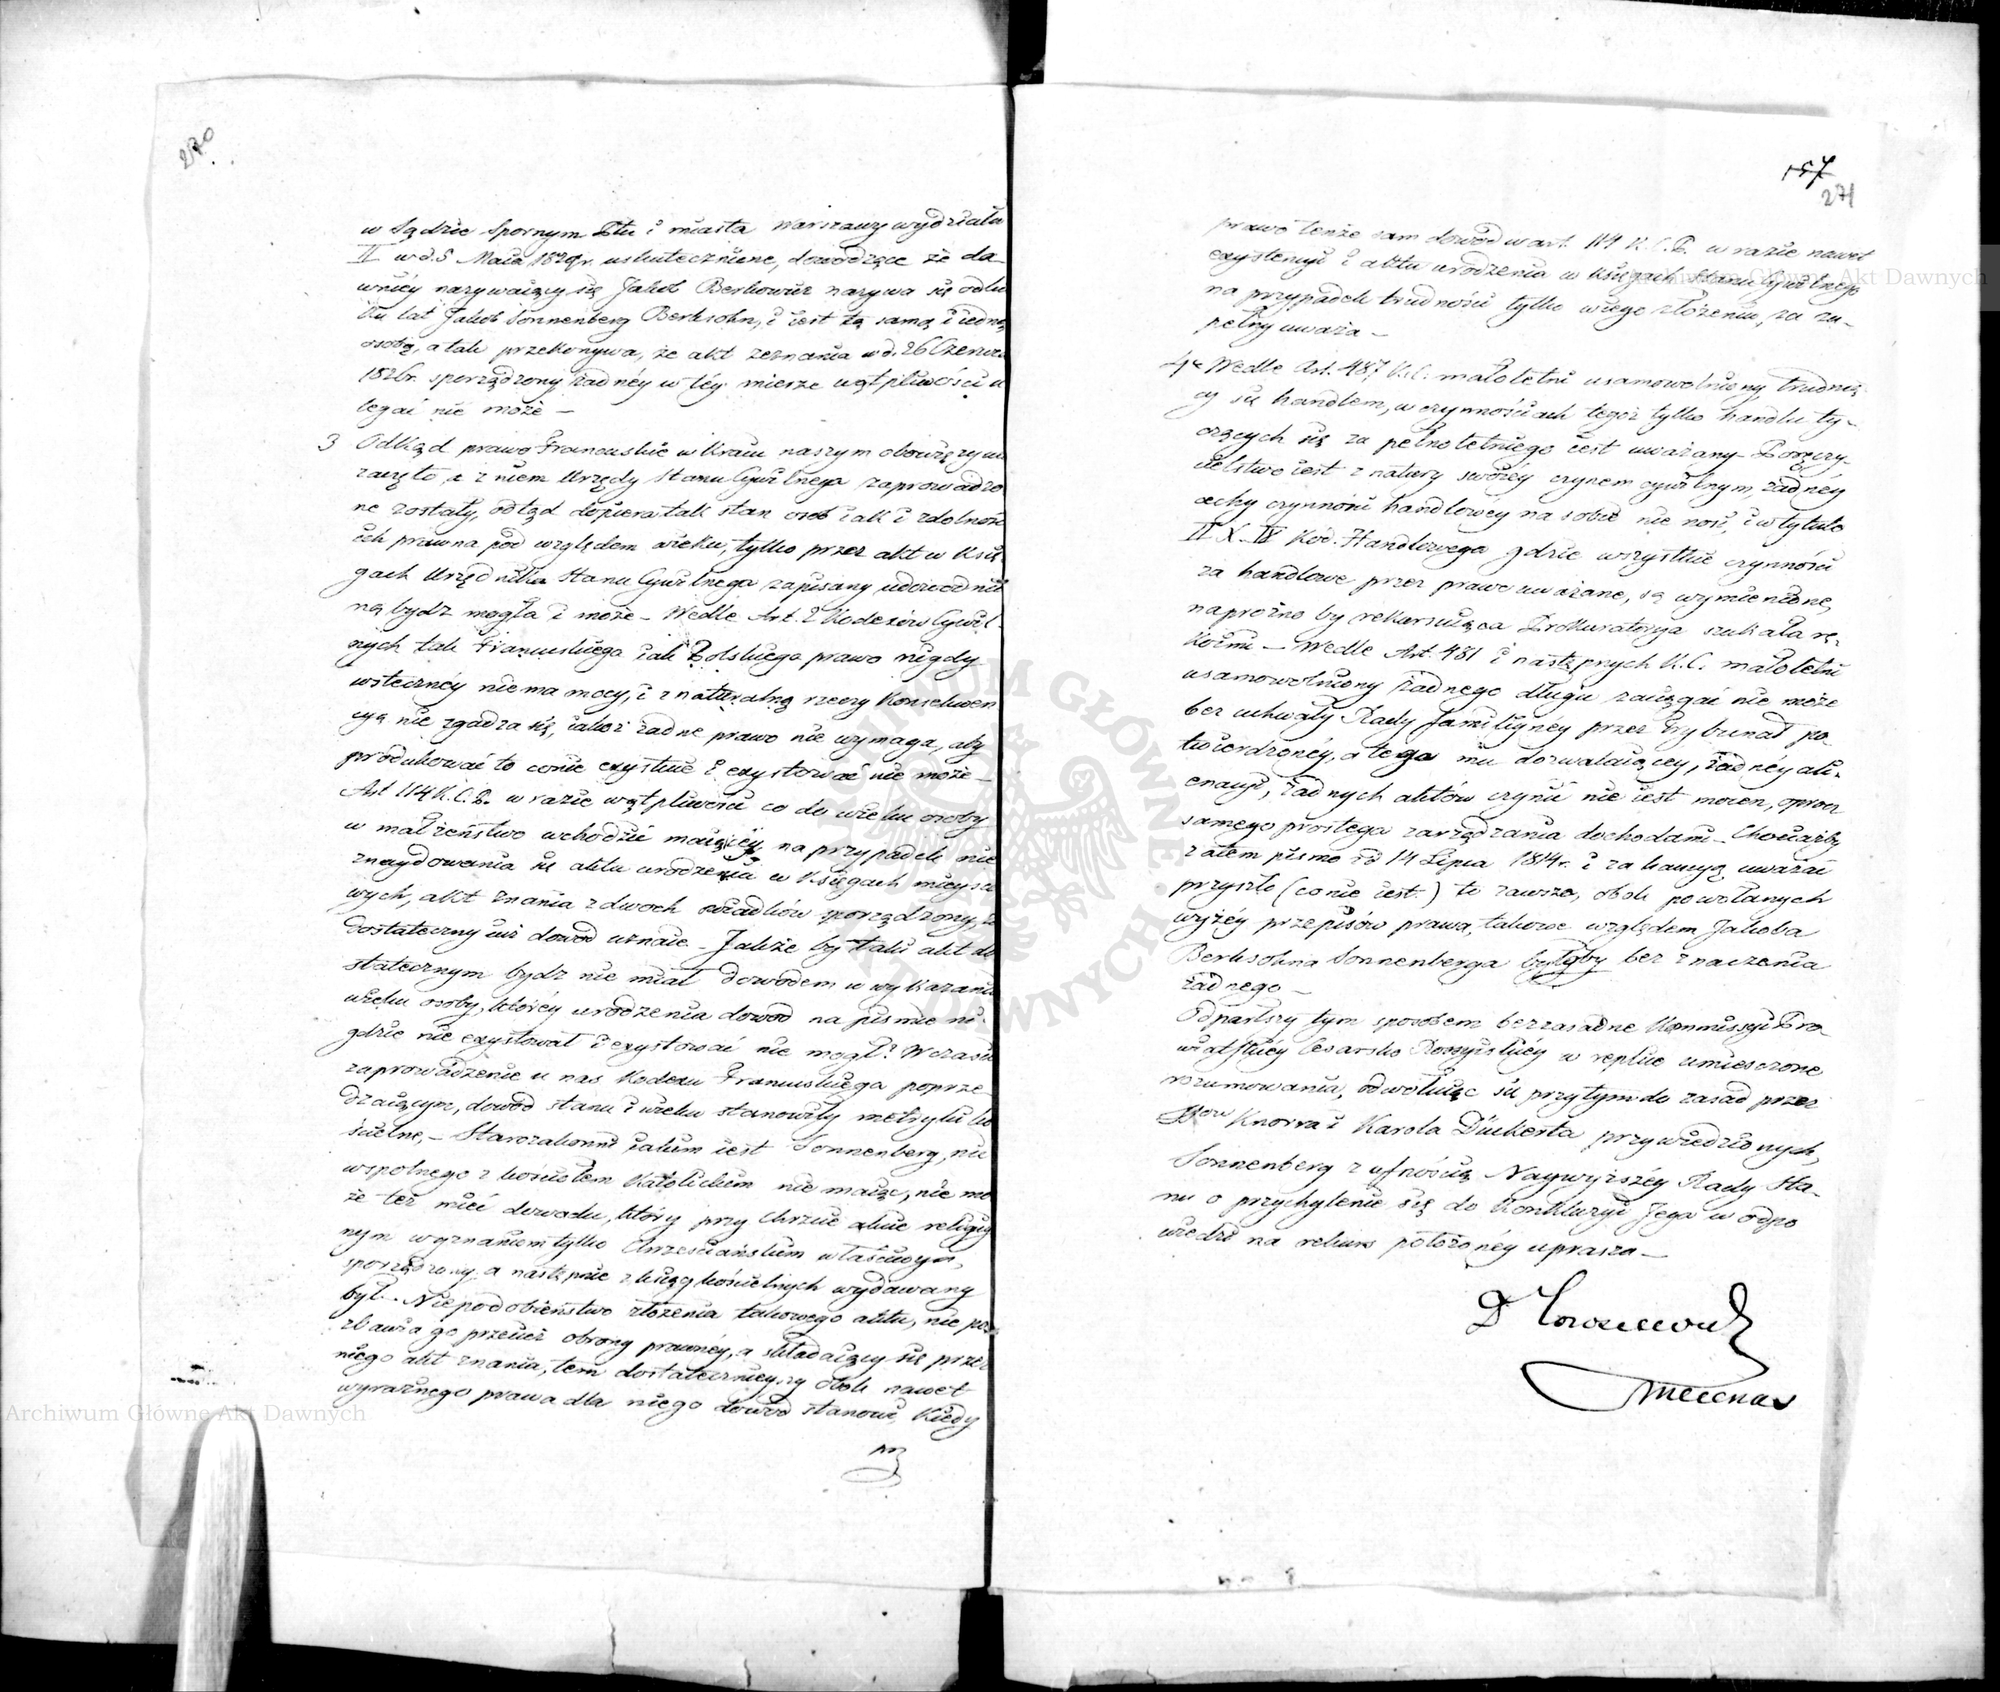 270
w Sądzie Spornym Pttu i miasta Warszawy wydziału
II w d. 5 Maia 1829r. uskutecznione, dowodzące że da-
wniéy nazywaiący się Jakób Berkowicz nazywa się od ki
ku lat Jakób Sonnenberg Berksohn, i iest tą samą i iedną
osobą, a tak przekonywa, że akt zeznania w d. 26 Czerwca
1826r. sporządzony żadnéy w téy mierze wątpliwości u
legać nie może —
3 Odkąd prawo Francuskie w Kraiu naszym obowiązywać
zaczęło, i z niem Urzędy Stanu Cywilnego zaprowadzo
ne zostały, odtąd dopiero tak stan osób iak i zdolność
ich prawna pod względem wieku, tylko przez akt w Księ
gach Urzędnika Stanu Cywilnego zapisany udowodnio
ną bydź mogła i może — Wedle Art. 2 Kodexów Cywil-
nych tak Francuskiego iak Polskiego prawo nigdy
wstecznéy niema mocy, i z naturalną rzeczy Konsekwen
cyą nie zgadza się, iakoż żadne prawo nie wymaga, aby
produkować to co nie exystuie i exystować nie może —
Art 114 K.C.P. w razie wątpliwości co do wieku osoby
w małżeństwo wchodzić maiącéy, na przypadek nie
znaydowania się aktu urodzenia w Księgach mieysco
wych, akt znania z dwoch świadków sporządzony, za
dostateczny iuż dowód uznaie — Jakże by taki akt do
statecznym bydź nie miał dowodem w wykazaniu
wieku osoby, któréy urodzenia dowód na pismie ni-
gdzie nie exystował i exystować nie mogł? W czasie
zaprowadzenie u nas Kodexu Francuskiego poprze
dzaiącym, dowód stanu i wieku stanowiły metryki ko
ścielne, — Starozakonny iakim iest Sonnenberg, nic
wspolnego z kościołem Katolickim nie maiąc, nie mo
że też mieć dowodu, który przy Chrzcie akcie religiy
nym wyznaniem tylko Chrześciańskim właściwym,
sporządzony, a następnie z ksiąg kościelnych wydawany
był. — Niepodobieństwo złożenia takowego aktu, nie po
zbawia go przecież obrony prawnéy, a składaiący się przez
niego akt znania, tem dostatecznieyszy obok nawet
wyraźnego prawa dla niego dowód stanowi, Kiedy
157
271
prawo tenże sam dowód w art. 114 K.C.P. w razie nawet
exystencyi i aktu urodzenia w księgach Stanu Cywilnego
na przypadek trudności tylko w iego złożeniu, za zu-
pełny uważa —
4e Wedle Art. 487 K.C. małoletni usamowolniony, trudnią-
cy się handlem, w czynnościach tegoż tylko handlu ty-
czących się za pełnoletniego iest uważany — Poręczy-
cielstwo iest z natury swoiéy czynem cywilnym, żadnéy
cechy czynności handlowey na sobie nie nosi, i w tytule
II X. IV Kod. Handlowego gdzie wszystkie czynności
za handlowe przez prawo uważane, są wymienione,
naprożno by rekursuiąca Prokuratorya szukała rę-
koimi — Wedle Art. 481 i następnych K.C. małoletni
usamowolniony żadnego długu zaciągać nie może
bez uchwały Rady Familiynéy przez Trybunał po-
twierdzonéy, a tego mu dozwalaiącéy, żadnéy ali-
enacyi, żadnych aktów czynić nie iest mocen, oprocz
samego prostego zarządzania dochodami — Chociażby
zatem pismo z d 14 Lipca 1814r. i za kaucyą uważać
przyszło (co nie iest) to zawsze, obok powołanych
wyżéy przepisów prawa, takowe względem Jakóba
Berksohna Sonnenberga byłoby bez znaczenia
żadnego —
Odparłszy tym sposobem bezzasadne Kommissyi Pro-
wiantskiéy Cesarsko Rossyiskiéy w replice umieszczone
rozumowania, odwołuiąc się przytym do zasad przez
Knorra i Karola Dückerta przywiedzionych,
Sonnenberg z ufnością Naywyższéy Rady Sta-
nu o przychylenie się do Konkluzyi Jego w odpo
wiedzi na rekurs położonéy uprasza —
Mecenas
Archiwum Główne Akt Dawnych